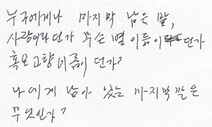 누구에게나 마지막 남은 말,
사랑이라던가 무슨 별 이름이던가
혹은 고향 이름이던가?
나에게 남아 있는 마지막 말은
무엇인가?